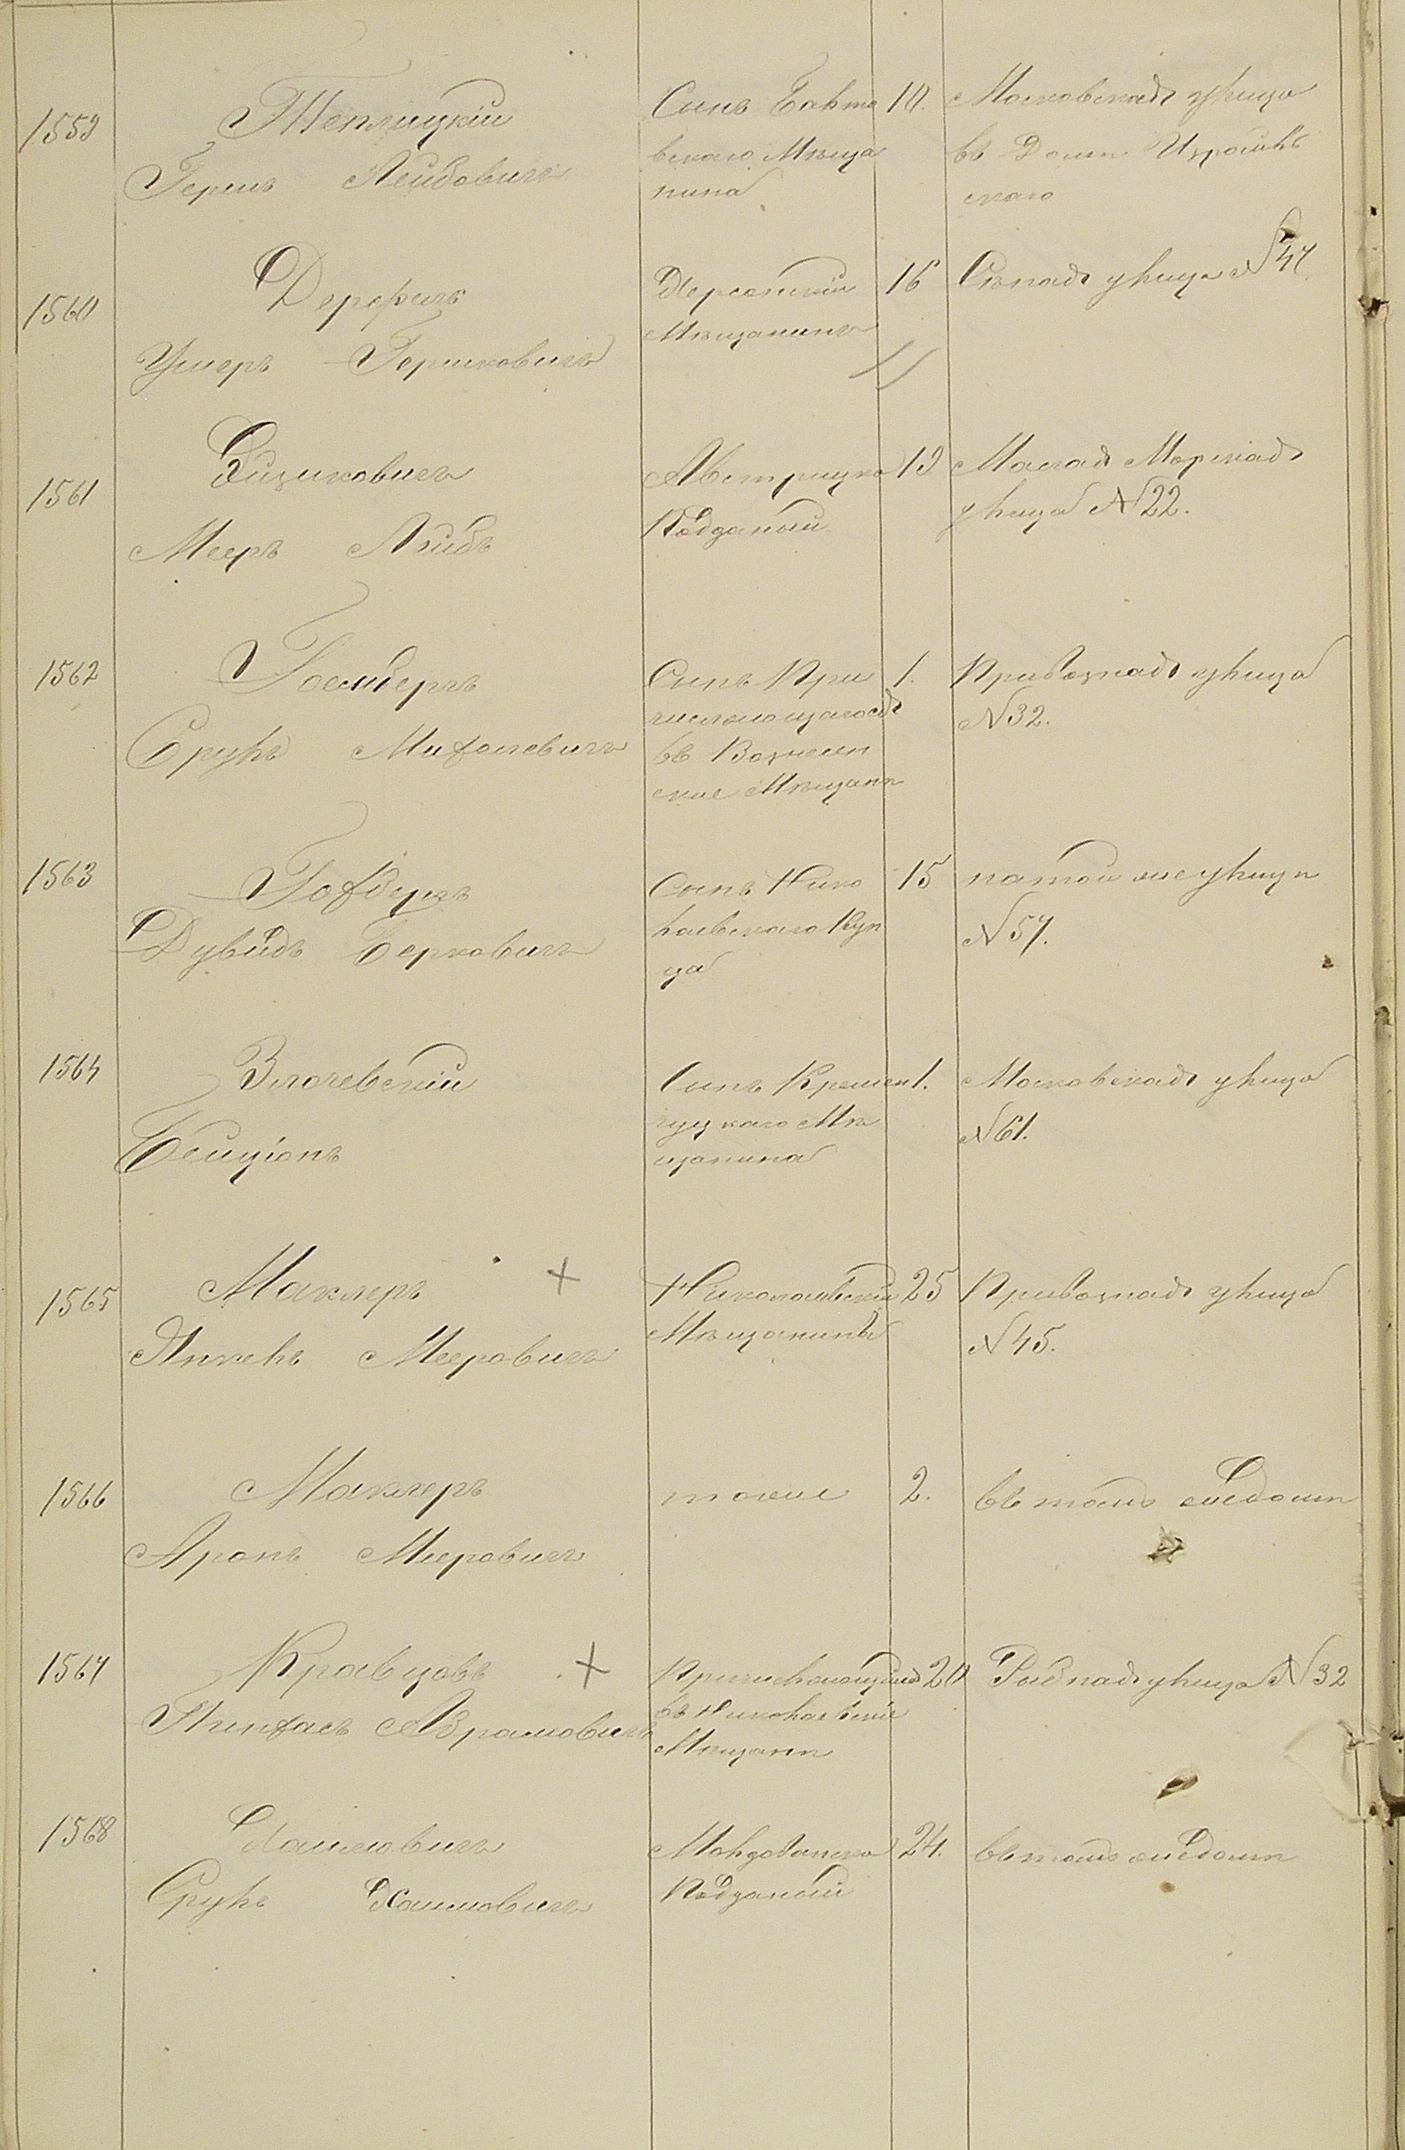 1559
Теплицкій
Гершъ Лейбовичъ
Сынъ Балто
вскаго Мѣща
нина
10.
Московская улица
въ Домѣ Израиль
скаго
1560
Дерфихъ
Ушеръ Гершковичъ
Херсонскій
Мѣщанинъ
16
Сѣнная улица №47.
1561
Ицковичъ
Мееръ Лейбъ
Австрицко
Подданый
19
Малая Морская
улица №22.
1562
Гоенбергъ
Сруль Михелевичъ
Сынъ При
числяющагося
въ Вознесен
ские Мѣщане
1.
Привозная улица
№32.
1563
Гофбухъ
Дувидъ Берковичъ
Сынъ Нико
лаевскаго Куп
ца
15
на той же улицѣ
№57.
1564
Злочевскій
Бенціонъ
Сынъ Кремен
чуцкаго Мѣ
щанина
1.
Московская улица
№61.
1565
Маклеръ
Янкель Мееровичъ
Николаевскій
Мѣщанинъ
25
Привозная улица
№45.
1566
Маклеръ
Аронъ Мееровичъ
тоже
2.
въ томъ же домѣ
1567
Кравцовъ
Пинхасъ Абрамовичъ
Причисляющійся
въ Николаевскіе
Мѣщане
20
Рыбная улица №32
1568
Хаимовичъ
Сруль Хаимовичъ
Молдованско
Подданый
24.
въ томъ же домѣ